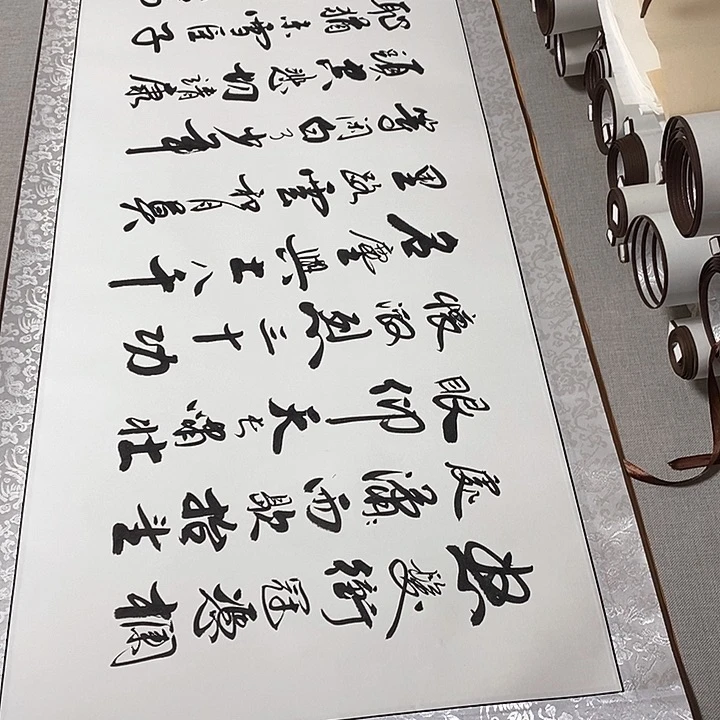 怒髮衝冠憑欄
處瀟瀟雨歇抬望
眼仰天長嘯壯
懷激烈三十功
名塵與土八千
里路雲和月莫
等閒白了少年
頭空悲切靖康
恥猶未雪臣子